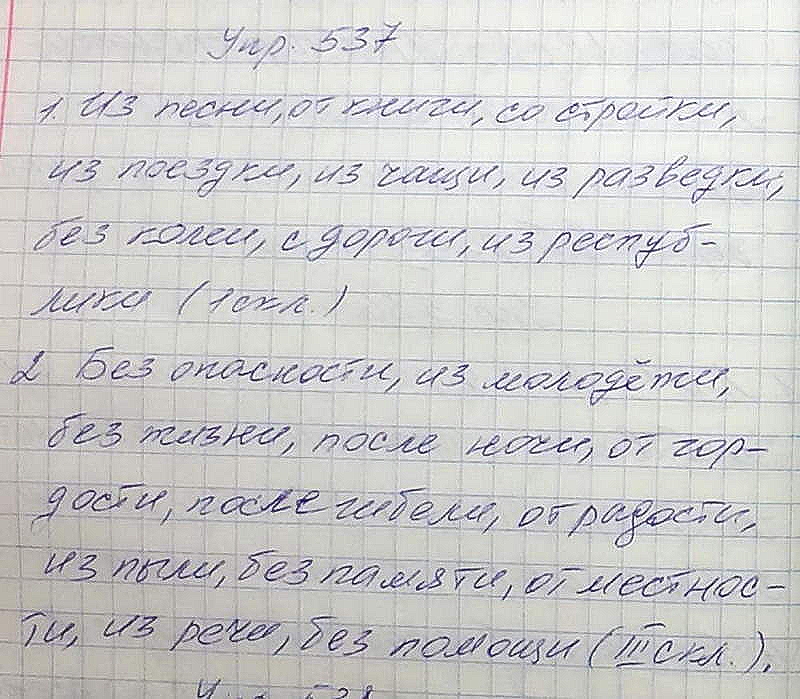 Упр. 537
1. Из песни, от книги, со стройки,
из поездки, из чащи, из разведки,
без колеи, с дороги, из респуб-
лики (1 скл.)
2 Без опасности, из молодёжи,
без жизни, после ночи, от гор-
дости, после гибели, от радости,
из пыли, без памяти, от местнос-
ти, из речи, без помощи (III скл.).
Упр. 538